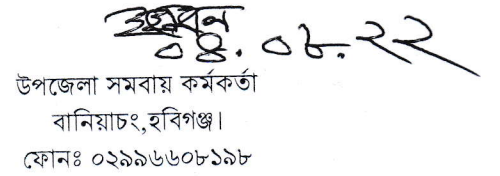 ০৪.০৮.২২
উপজেলা সমবায় কর্মকর্তা
বানিয়াচং,হবিগঞ্জ।
ফোনঃ ০২৯৯৬৬০৮১৯৮